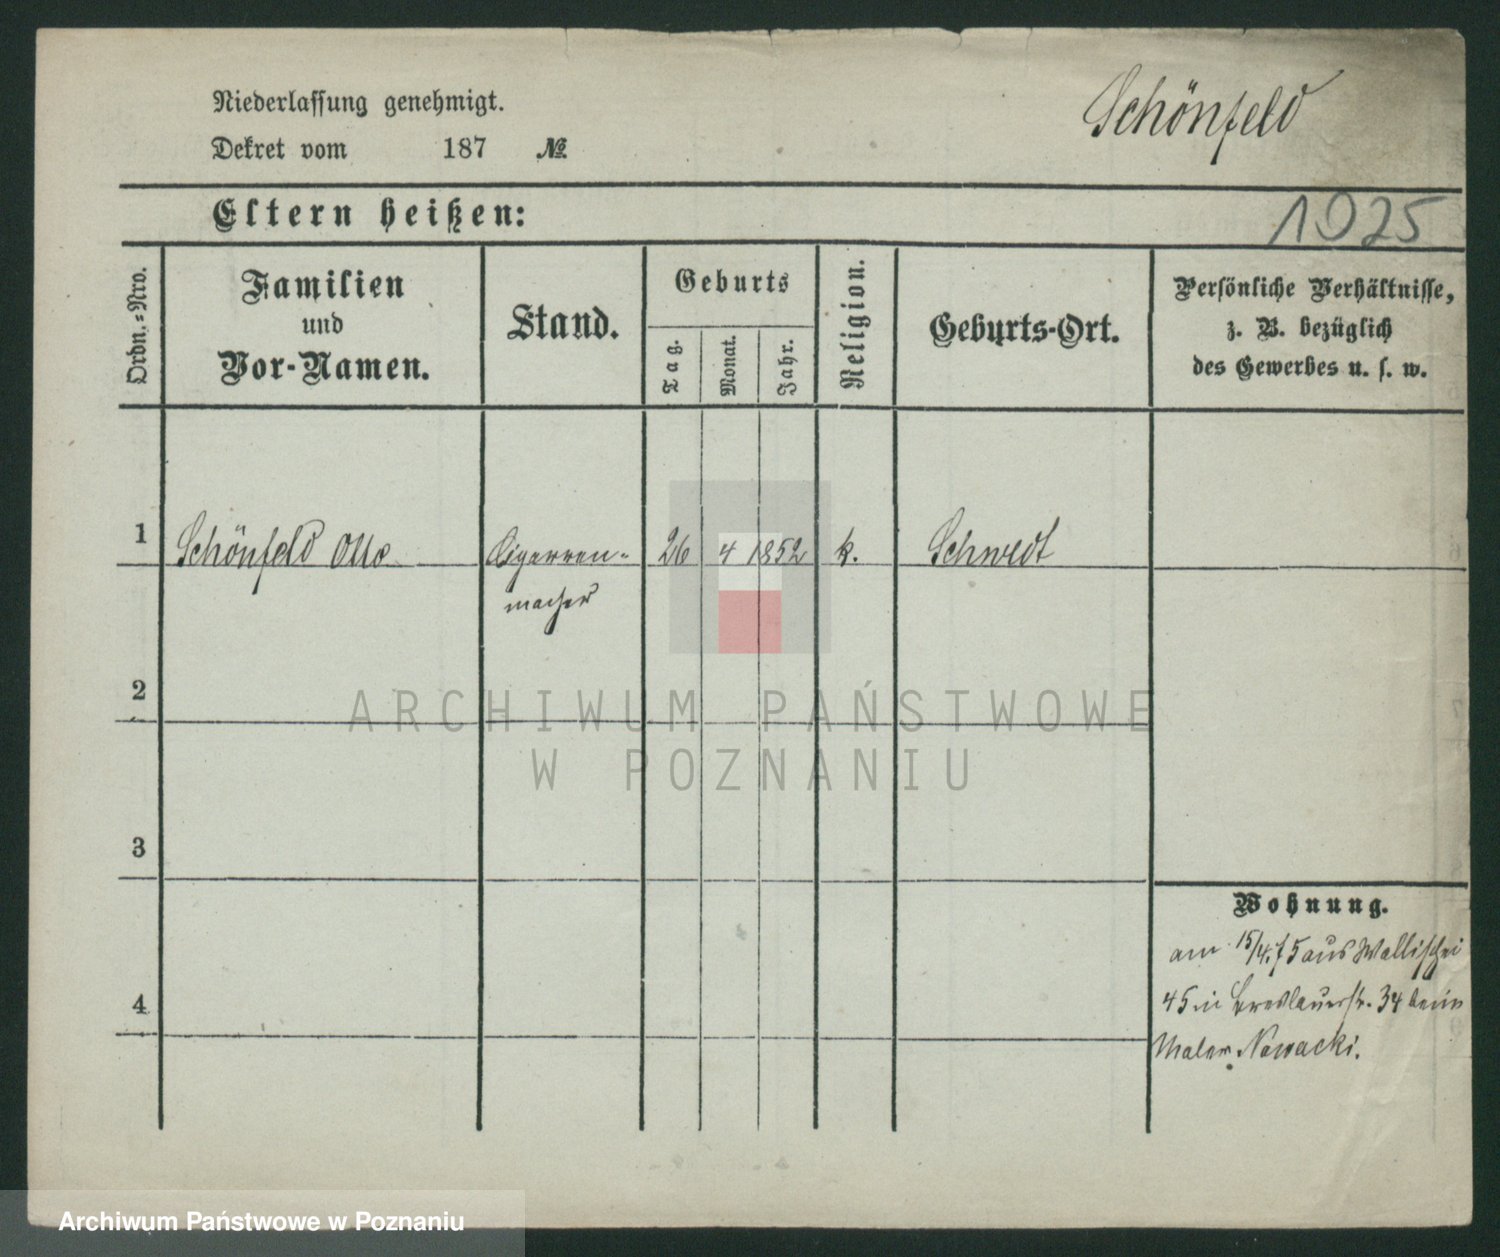 Niederlassung genehmigt.
Schönfeld
Dekret vom 187 №
Eltern heißen:
1925
Ordn.-Nro.
Familien
und
Vor-Namen.
Stand.
Geburts
Tag.
Monat.
Jahr.
Religion.
Geburts-Ort.
Persönliche Verhältnisse,
z. B. bezüglich
des Gewerbes u. s. w.
1 Schönfeld Otto Cigarren- 26 4 1852 k. Schwedt
macher
2
ARCHIWUM PAŃSTWOWE
W POZNANIU
3
Wohnung.
am 15/4.75 aus Wallischei
45 in Breslauerstr. 34 beim
Maler Nowacki.
4
Archiwum Państwowe w Poznaniu